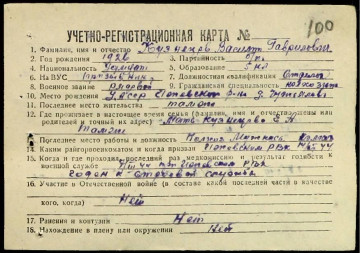 100
УЧЕТНО-РЕГИСТРАЦИОННАЯ КАРТА №
1. Фамилия, имя и отчество Кузнецов Василий Гаврилович
2. Год рождения 1926 3. Партийность б/п
4. Национальность 5. Образование 5 кл
6. На ВУС 7. Должностная квалификация Стрелок
8. Военное звание рядовой 9. Гражданская специальность
10. Место рождения УАССР р-он д.
11. Последнее место жительства там же
12. Где проживает в настоящее время семья (фамилия, имя и отчество жены или
родителей и точный их адрес) Мать Кузнецова А.
там же
13. Последнее место работы и должность колхоз
14. Каким райвоенкоматом и когда призван РВК 44
15. Когда и где проходил последний раз медкомиссию и результат годности к
военной службе 44 при РВК
годен к строевой службе
16. Участие в Отечественной войне (в составе какой последней части в качестве
кого, когда) Нет
17. Ранения и контузии Нет
18. Нахождение в плену или окружении Нет